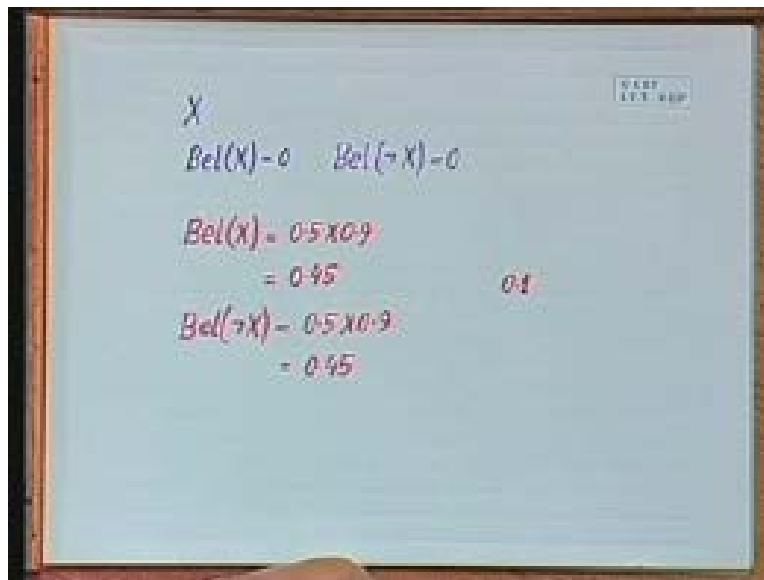 X
Bel(X) = 0 Bel(¬X) = 0
Bel(X) = 0.5 X 0.9
= 0.45
0.1
Bel(¬X) = 0.5 X 0.9
= 0.45